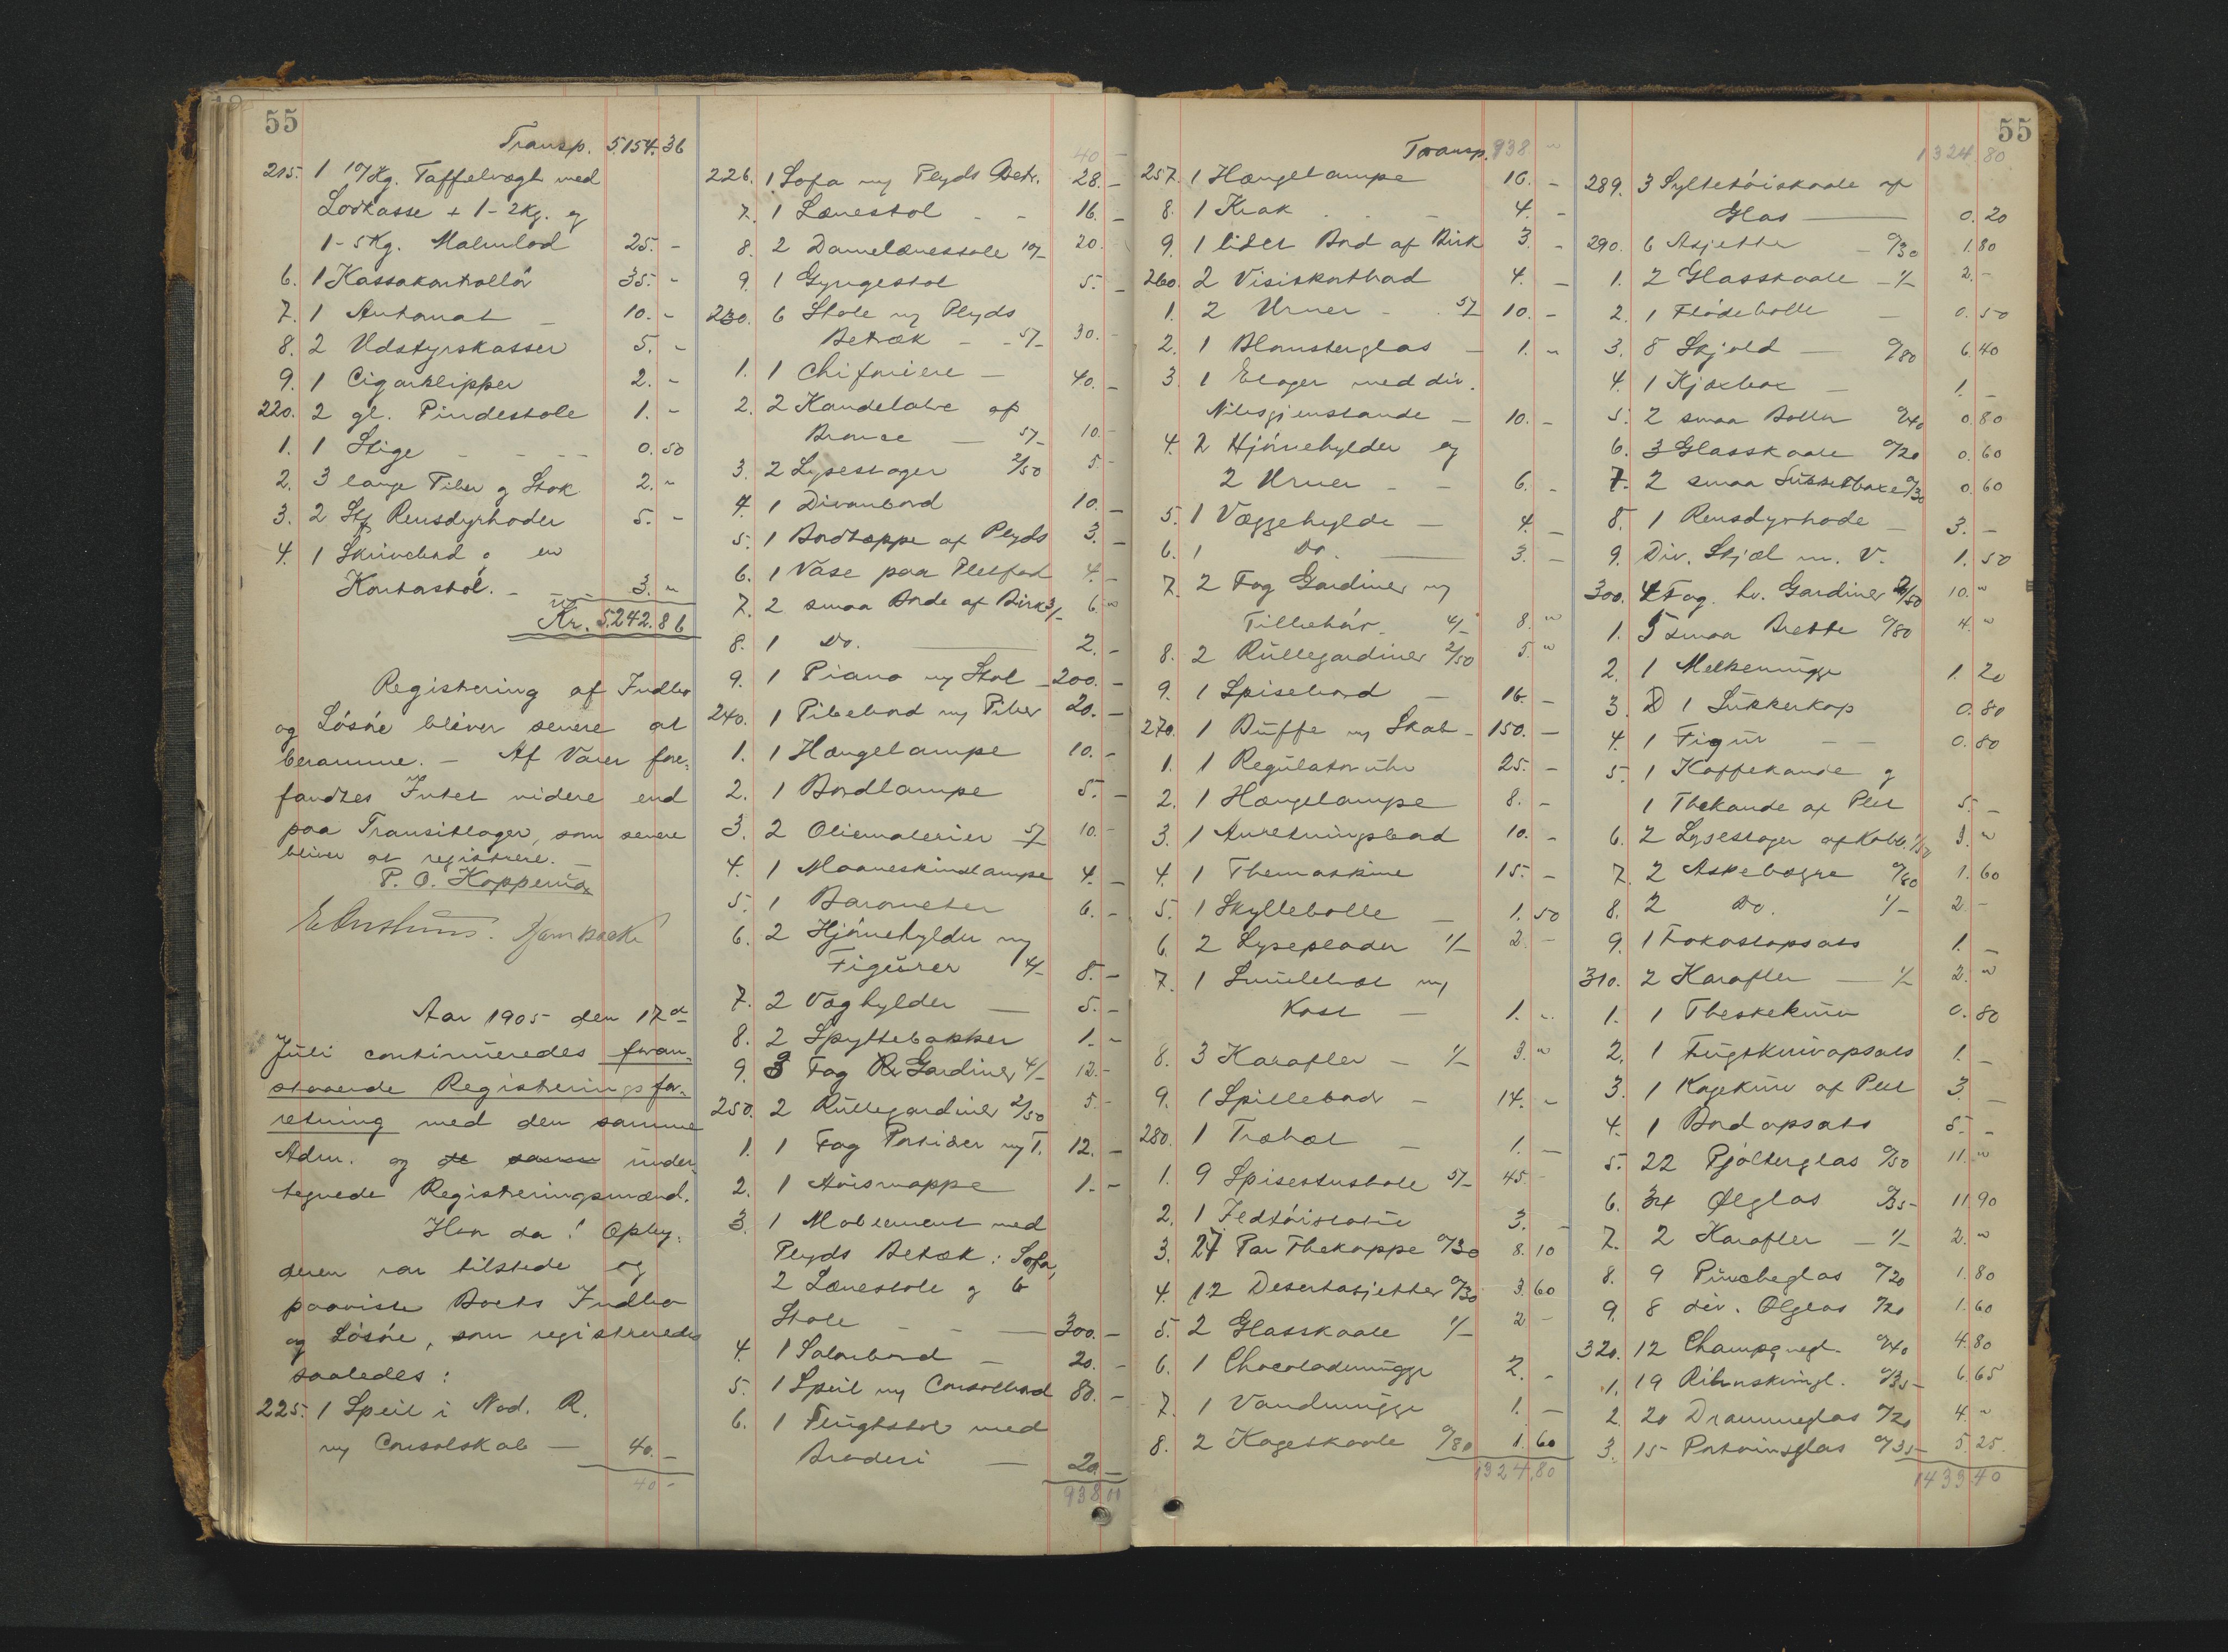 55
Transp. 5154.36
215. 1 10/Kg. Taffelvægt med
Lodkasse + 1-2Kg. og
1-5Kg. Malmlod 25.-
6. 1 Kassakontrollør 35.-
7. 1 Automat - 10.-
8. 2 Udstyrskasser 5.-
9. 1 Cigarklipper 2.-
220. 2 gl. Pindestole 1.-
1. 1 Stige - - - 0.50
2. 3 lange Piber og Stok 2.-
3. 2 Stk Rensdyrhoder 5.-
4. 1 Skrivebord og en
Kontorstol. - 3.-
Kr. 5.242.86
Registering af Indbo
og Løsøre bliver senere at
beramme. - Af Varer fore-
fandtes Intet videre end
paa Transitlager, som senere
bliver at registrere. -
P. O. Kopperud
Aar 1905 den 17de
Juli continueredes foran-
staaende Registreringsfor-
retning med den samme
Adm. og de samme under-
tegnede Registreringsmænd.
Hvor da! Opby-
deren var tilstede og
paaviste Boets Indbo
og Løsøre, som registreredes
saaledes:
225. 1 Speil i Nød. R.
m/ Consolskab - 40.-
40 -
40 -
226. 1 Sofa m/ Plyds Betr. 28.-
7. 1 Lænestol - - 16.-
8. 2 Damelænestole 10/- 20.-
9. 1 Gyngestol 5.-
230. 6 Stole m/ Plyds
Betræk - - 5/- 30.-
1. 1 Chifoniere - 40.-
2. 2 Kandelabre af
Bronce - 5/- 10.-
3. 2 Lysestager 2/50 5.-
4. 1 Divanbord 10.-
5. 1 Bordteppe af Plyds 3.-
6. 1 Vase paa Pletfod 4.-
7. 2 smaa Borde af Birk 3/- 6.-
8. 1 Do. 2.-
9. 1 Piano m/ Stol - 200.-
240. 1 Pibebord m/ Piber 20.-
1. 1 Hængelampe 10.-
2. 1 Bordlampe 5.-
3. 2 Oliemalerier 5/- 10.-
4. 1 Maaneskinslampe 4.-
5. 1 Barometer 6.-
6. 2 Hjørnehylder m/
Figurer 4/- 8.-
7. 2 Væghylder - 5.-
8. 2 Spyttebakker 1.-
9. 3 Fag Gardiner 4/- 12.-
250. 2 Rullegardiner 2/50 5.-
1. 1 Fag Portierer m/ T. 12.-
2. 1 Avismappe 1.-
3. 1 Møblement med
Plyds Betræk: Sofa,
2 Lænestole og 6
Stole - - - 300.-
4. 1 Salonbord - 20.-
5. 1 Speil m/ Consolbord 80.-
6. 1 Flugtstol med
Broderi - 20.-
938 "
55
Transp. 938 "
257. 1 Hængelampe 16.-
8. 1 Krak - 4.-
9. 1 lidet Bord af Birk 3.-
260. 2 Visiskortbad 4.-
1. 2 Urner - 5/- 10.-
2. 1 Blomsterglas - 1.-
3. 1 Etager med div.
Nipsgjenstande - 10.-
4. 2 Hjørnehylder og
2 Urner - - 6.-
5. 1 Væggehylde - 4.-
6. 1 Do. 3.-
7. 2 Fag Gardiner m/
Tilbehør. 4/- 8.-
8. 2 Rullegardiner 2/50 5.-
9. 1 Spisebord - 16.-
270. 1 Buffe m/ Skab - 150.-
1. 1 Regulatoruhr 25.-
2. 1 Hængelampe 8.-
3. 1 Anretningsbord 10.-
4. 1 Themaskine 15.-
5. 1 Skyllebolle - 1.50
6. 2 Lyseplader 1/- 2.-
7. 1 Smulebræt m/
Kost - 1.-
8. 3 Karafler - 1/- 3.-
9. 1 Spillebord - 14.-
280. 1 Træbat - 1.-
1. 9 Spisestustole 5/- 45.-
2. 1 3.-
3. 27 Par Thekoppe 0/30 8.10
4. 12 Desertasjetter 0/30 3.60
5. 2 Glasskaale 1/- 2.-
6. 1 Chocolademugge 2.-
7. 1 Vandmugge 1.-
8. 2 Kageskaale 0/80 1.60
1324,80
1324.80
289. 3 Syltetøiskaale af
Glas 0.20
290. 6 Asjetter - 0/30 1.80
1. 2 Glasskaale - 1/- 2.-
2. 1 Flødebolle - 0.50
3. 8 Skjold - 0/80 6.40
4. 1 Kjæxboxe - 1.-
5. 2 smaa Boller 0/40 0.80
6. 3 Glasskaale 0/20 0.60
7. 2 smaa 0/30 0.60
8. 1 Rensdyrhode - 3.-
9. Div. Skjæl m. V. 1.50
300. 4 Fag. hv. Gardiner 2/50 10.-
1. 5 smaa Brette 0/80 4.-
2. 1 Melkemugge 1.20
3. 1 Sukkerkop 0.80
4. 1 Figur - - 0.80
5. 1 Kaffekande og
1 Thekande af Plet 5.-
6. 2 Lysestager af Kobb. 1/50 3.-
7. 2 Askebægre 0/80 1.60
8. 2 Do. 1/- 2.-
9. 1 Frokostopsats 1.-
310. 2 Karafler - 1/- 2.-
1. 1 Theskekurv 0.80
2. 1 Frugtknivopsats 1.-
3. 1 Kagekurv af Plet 3.-
4. 1 Bordopsats 5.-
5. 22 Pjolterglas 0/50 11.-
6. 34 Ølglas 0/35 11.90
7. 2 Karafler - 1/- 2.-
8. 9 Puncheglas 0/20 1.80
9. 8 div. Ølglas 0/20 1.60
320. 12 Champgnegl. 0/40 4.80
1. 19 Rihnskvingl. 0/35 6.65
2. 20 Drammeglas 0/20 4.-
3. 15 Portvinsglas 0/35 5.25.
1433.40